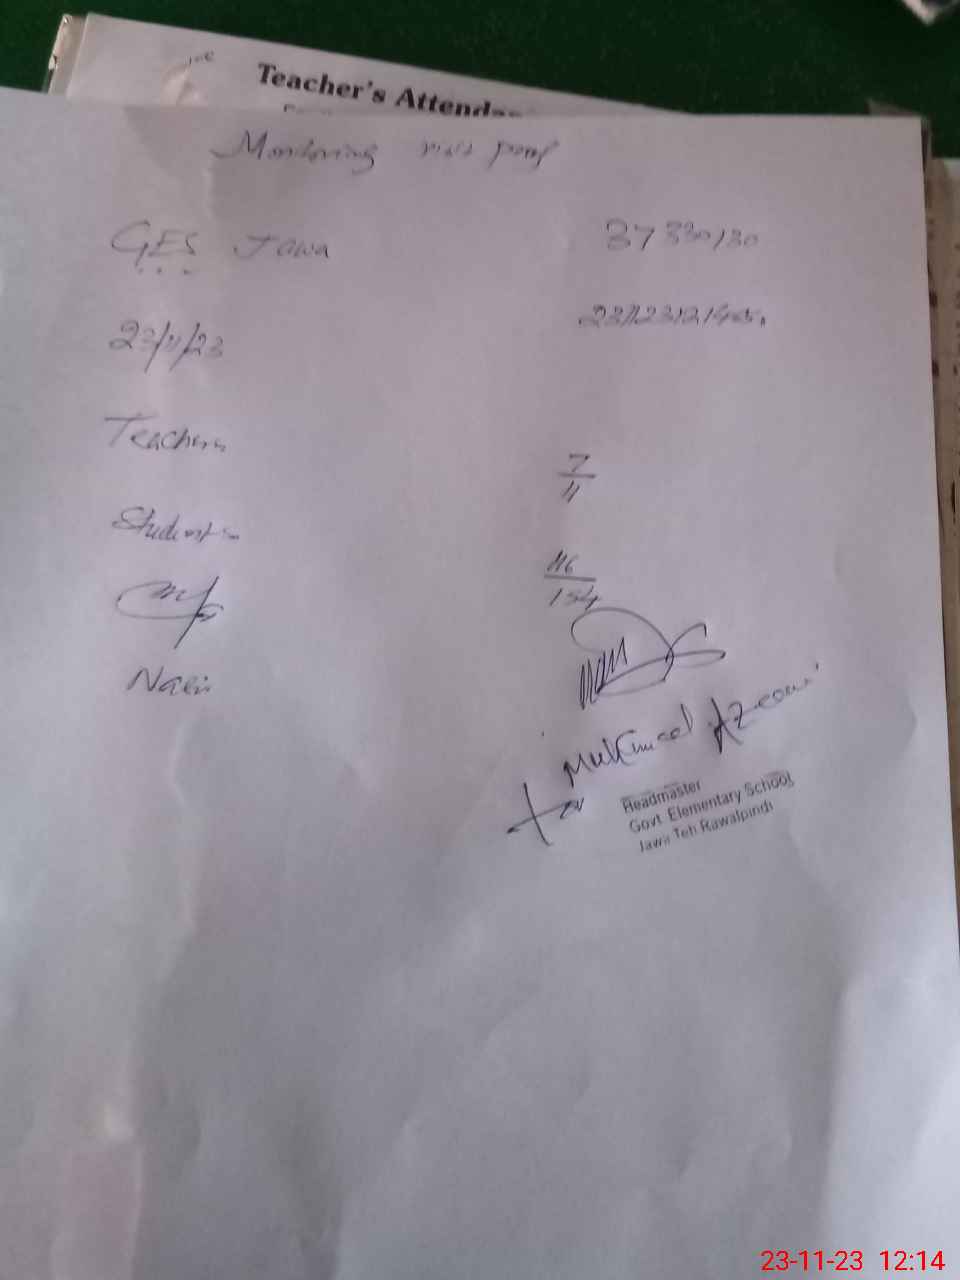 Teacher's Attendan
Monitoring visit proof
GES Jawa 37330130
23/11/23
Teachers 7/11
Students 116/154
Headmaster
Govt Elementary School
Jawa Teh Rawalpindi
23-11-23 12:14